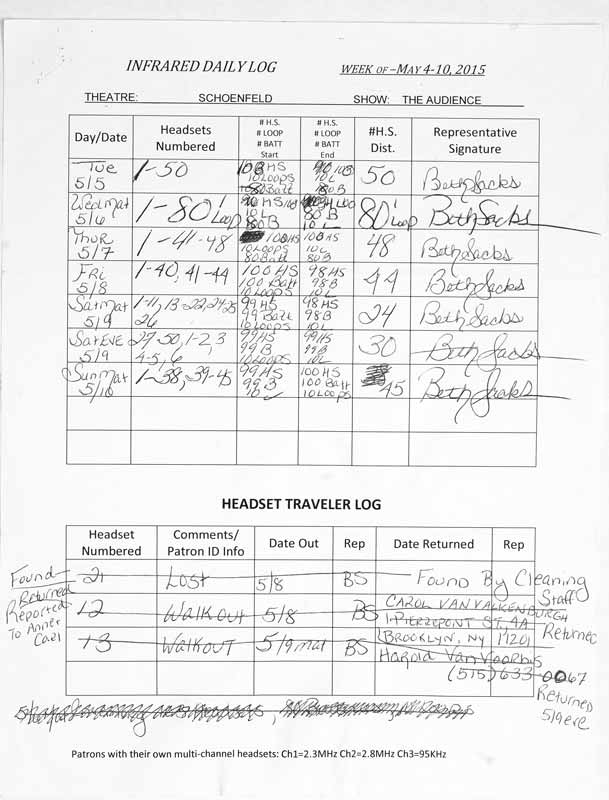 INFRARED DAILY LOG WEEK OF – MAY 4-10, 2015
THEATRE: SCHOENFELD SHOW: THE AUDIENCE
Day/Date Headsets Numbered # H.S. # LOOP # BATT Start # H.S. # LOOP # BATT End #H.S. Dist. Representative Signature
Tue 5/5 1-50 HS 10 Loops 80 Batt 10 L 80 B 50 Beth Sacks
Wed Mat 5/6 1-80 1 Loop 10 L 80 B 80 B 10 L 80 1 Loop Beth Sacks
Thur 5/7 1-41-48 100 HS 10 Loops 80 Batt 100 HS 10 L 80 B 48 Beth Sacks
Fri 5/8 1-40, 41-44 100 HS 100 Batt 10 Loops 98 HS 98 B 10 L 44 Beth Sacks
Sat Mat 5/9 1-11, 13-22, 24-25 26 99 HS 99 Batt 10 Loops 98 HS 98 B 10 L 24 Beth Sacks
Sat Eve 5/9 27-50, 1-2, 3 4-5, 6 99 HS 99 B 10 Loops 99 HS 99 B 10 L 30 Beth Sacks
Sun Mat 5/10 1-38, 39-45 99 HS 99 B 10 L 100 HS 100 Batt 10 Loops 45 Beth Sacks
HEADSET TRAVELER LOG
Headset Numbered Comments/ Patron ID Info Date Out Rep Date Returned Rep
Found 21 Lost 5/8 BS Found By Cleaning Staff
Returned Reported To Anner
12 Walkout 5/8 BS Carol Van Valkenburgh
1 Pierrepont St, 4A
Brooklyn, NY 11201 Returned
13 Walkout 5/9 mat BS Harold Van Voorhis
(515) 633-0067
Returned 5/9 eve
Patrons with their own multi-channel headsets: Ch1=2.3MHz Ch2=2.8MHz Ch3=95KHz